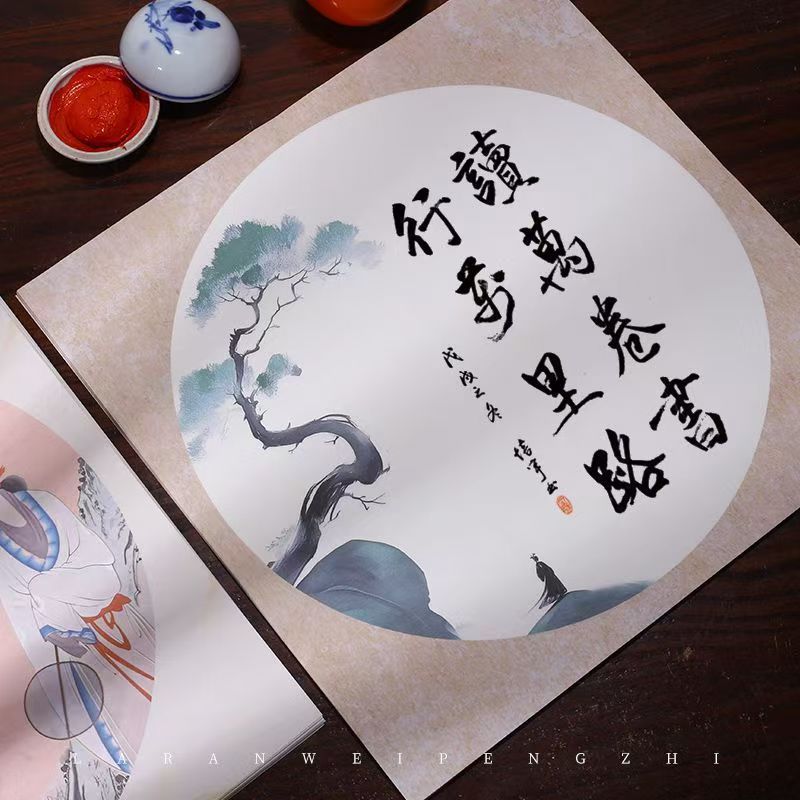 讀萬卷書
行萬里路
戊戌之冬
LARANWEIPENGZHI